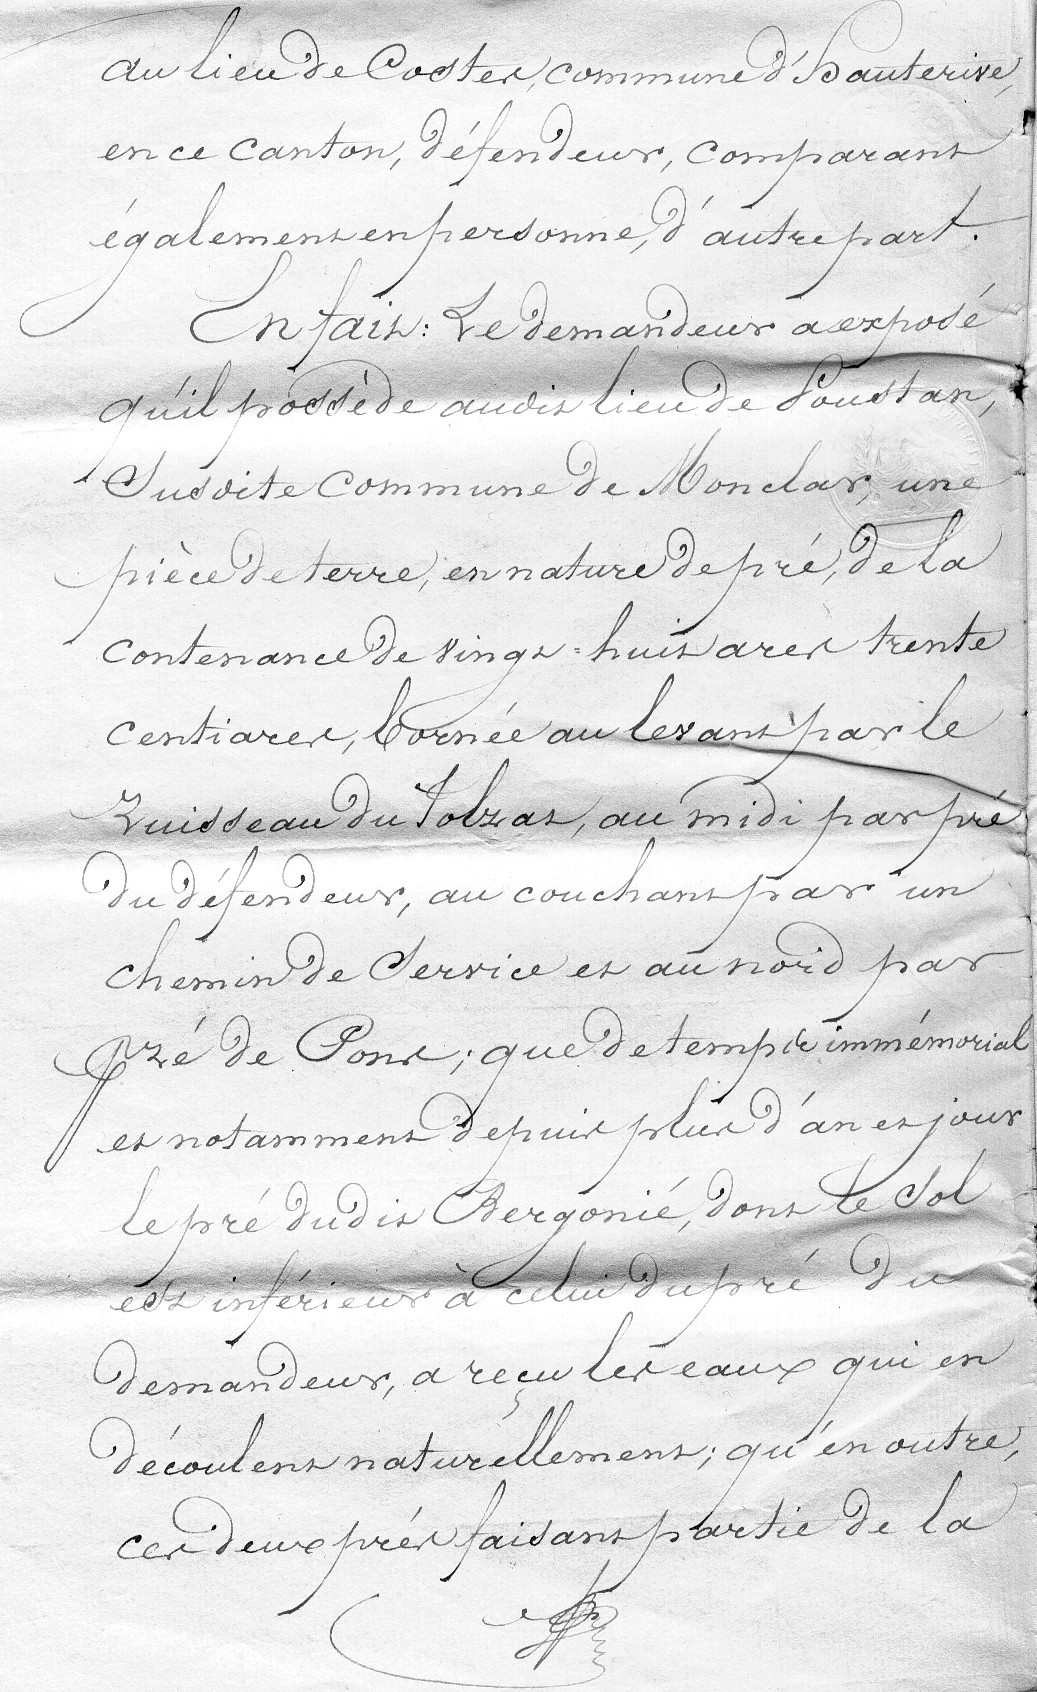 au lieu de Costes, commune d'Hauterive,
en ce canton, défendeur, comparant
également en personne, d'autre part.
En fait: Le demandeur a exposé
qu'il possède audit lieu de Loustan,
Susdite commune de Monclar, une
pièce de terre, en nature de pré, de la
contenance de vingt-huit ares trente
centiares, bornée au levant par le
Ruisseau du Tolzat, au midi par pré
du défendeur, au couchant par un
chemin de Service et au nord par
pré de Pons; que de temps immémorial
et notamment depuis plus d'an et jour
le pré dudit Bergonié, dont le Sol
est inférieur à celui du pré du
demandeur, a reçu les eaux qui en
découlent naturellement; qu'en outre,
ces deux prés faisant partie de la